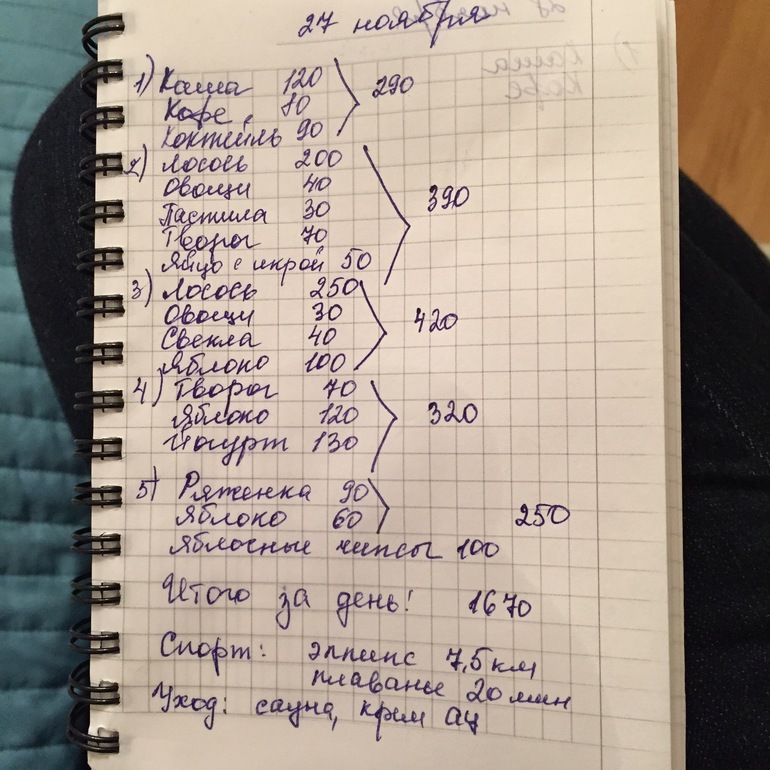 27 ноября
1) Каша 120
Кофе 80
Коктейль 90
290
2) Лосось 200
Овощи 40
Пастила 30
Творог 70
Яйцо с икрой 50
390
3) Лосось 250
Овощи 30
Свекла 40
Яблоко 100
420
4) Творог 70
Яблоко 120
Йогурт 130
320
5) Ряженка 90
Яблоко 60
Яблочные чипсы 100
250
Итого за день! 1670
Спорт: эллипс 7,5 км
плаванье 20 мин
Уход: сауна, крем ац